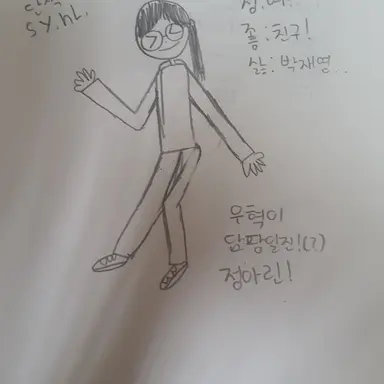 SY.HL.
좋:친구!
싫:박재영..
우혁이
담팡일진!(?)
정아린!